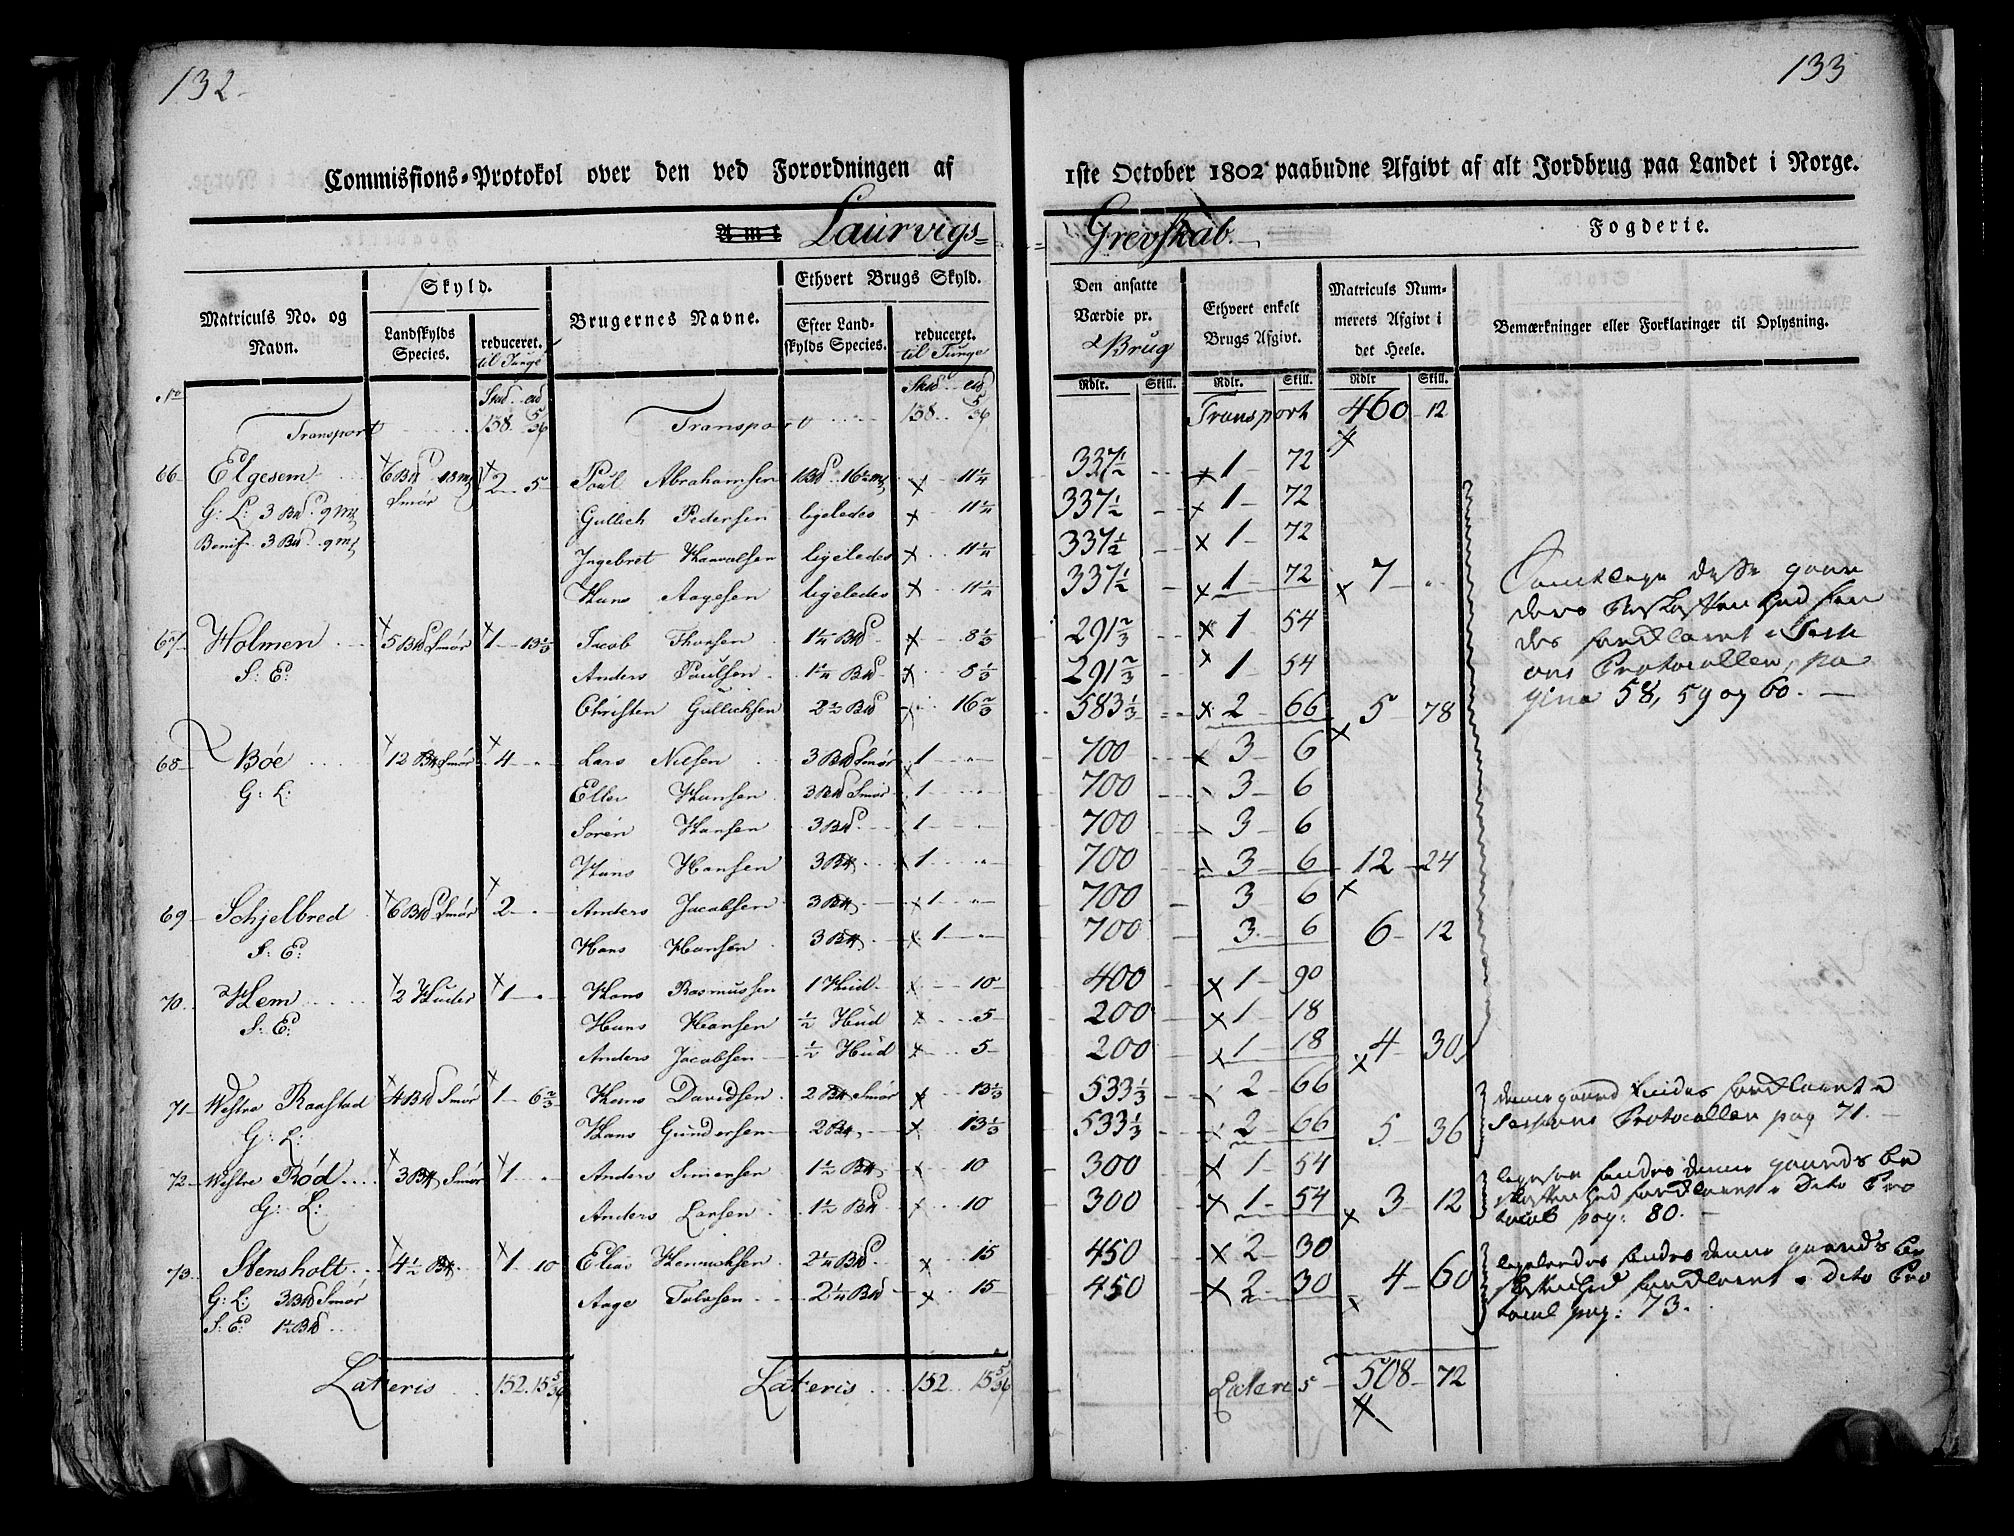 132
133
Commissions-Protokol over den ved Forordningen af 1ste October 1802 paabudne Afgivt af alt Jordbrug paa Landet i Norge.
Amt Laurvigs= Grevskab. Fogderie.
Matriculs No. og Navn.
Skyld.
Landskylds Species.
reduceret. til Tunge
Brugernes Navne.
Ethvert Brugs Skyld.
Efter Landskylds Species.
reduceret. til Tunge
Den ansatte Værdie pr. Brug
Ethvert enkelt Brugs Afgivt.
Matriculs Nummerets Afgivt i det Heele.
Bemærkninger eller Forklaringer til Oplysning.
Rdlr. Skill. Rdlr. Skill. Rdlr Skill.
No
Transport 138. 5/36 Transport 138. 5/36 Transport 460 - 12
66 Elgesem 6 Bd 18 mk Smør 2 - 5 Poul Abrahamsen 1 Bd 16½ mk 11¼ 337½ 1 - 72
G: L: 3 Bd. 9 mk Gullich Pedersen ligeledes 11¼ 337½ 1 - 72
Benif. 3 Bd. 9 mk Ingebret ligeledes 11¼ 337½ 1 - 72
Hans Aagesen ligeledes 11¼ 337½ 1 - 72 7 -
67 Holmen 5 Bd Smør 1 - 13⅓ Jacob Thorsen 1¼ Bd 8⅓ 291⅔ 1 - 54
S: E: Anders Paulsen 1¼ Bd 8⅓ 291⅔ 1 54
Christen Gullichsen 2½ Bd 16⅔ 583⅓ 2 - 66 5 - 78
68 Bøe 12 Bd Smør 4 Lars Nielsen 3 Bd Smør 1 700 3 - 6
G: L: Eller Hansen 3 Bd Smør 1 700 3 - 6
Søren Hansen 3 Bd 1 700 3 - 6
Hans Hansen 3 Bd 1 700 3 - 6 12 - 24
69 Schjelbred 6 Bd Smør 2 Anders Jacobsen 3 Bd 1 700 3 - 6
S: E: Hans Hansen 3 Bd 1 700 3 - 6 6 - 12
70 Hem 2 Huder 1 Hans Rasmussen 1 Hud 10 400 1 - 90
S: E: Hans Hansen ½ Hud 5 200 1 - 18
Anders Jacobsen ½ Hud 5 200 1 - 18 4 - 30
71 Westre Raastad 4 Bd Smør 1 - 6⅔ Hans Davidsen 2 Bd Smør 13⅓ 533⅓ 2 - 66
G: L: Hans Gundersen 2 Bd 13⅓ 533⅓ 2 - 66 5 - 36
72 Westre Rød 3 Bd Smør 1 Anders Simensen 1½ Bd 10 300 1 - 54
G: L: Anders Larsen 1½ Bd 10 300 1 - 54 3 - 12
73 Stensholt 4½ Bd 1 - 10 Elias 2¼ Bd 15 450 2 - 30
G: L: 3 Bd Smør Aage 2¼ Bd 15 450 2 - 30 4 - 60
S: E: 1½ Bd
Lateris 152. 15 5/36 Lateris 152 15 5/36 Lateris 508 - 72
Samtlige disse gaar
ders Beskaffenhed fin
des forklaret i Sessi
ons Protocollen, pa
gina 58, 59 og 60.
denne gaard findes forklaret i
Sessions Protocollen pag 71.
ligesaa findes denne gaards be
skaffenhed forklaret i Dito Pro
tocol pag: 80.
ligeledes findes denne gaards be
skaffenhed forklaret i Dito Pro
tocol pag: 73.